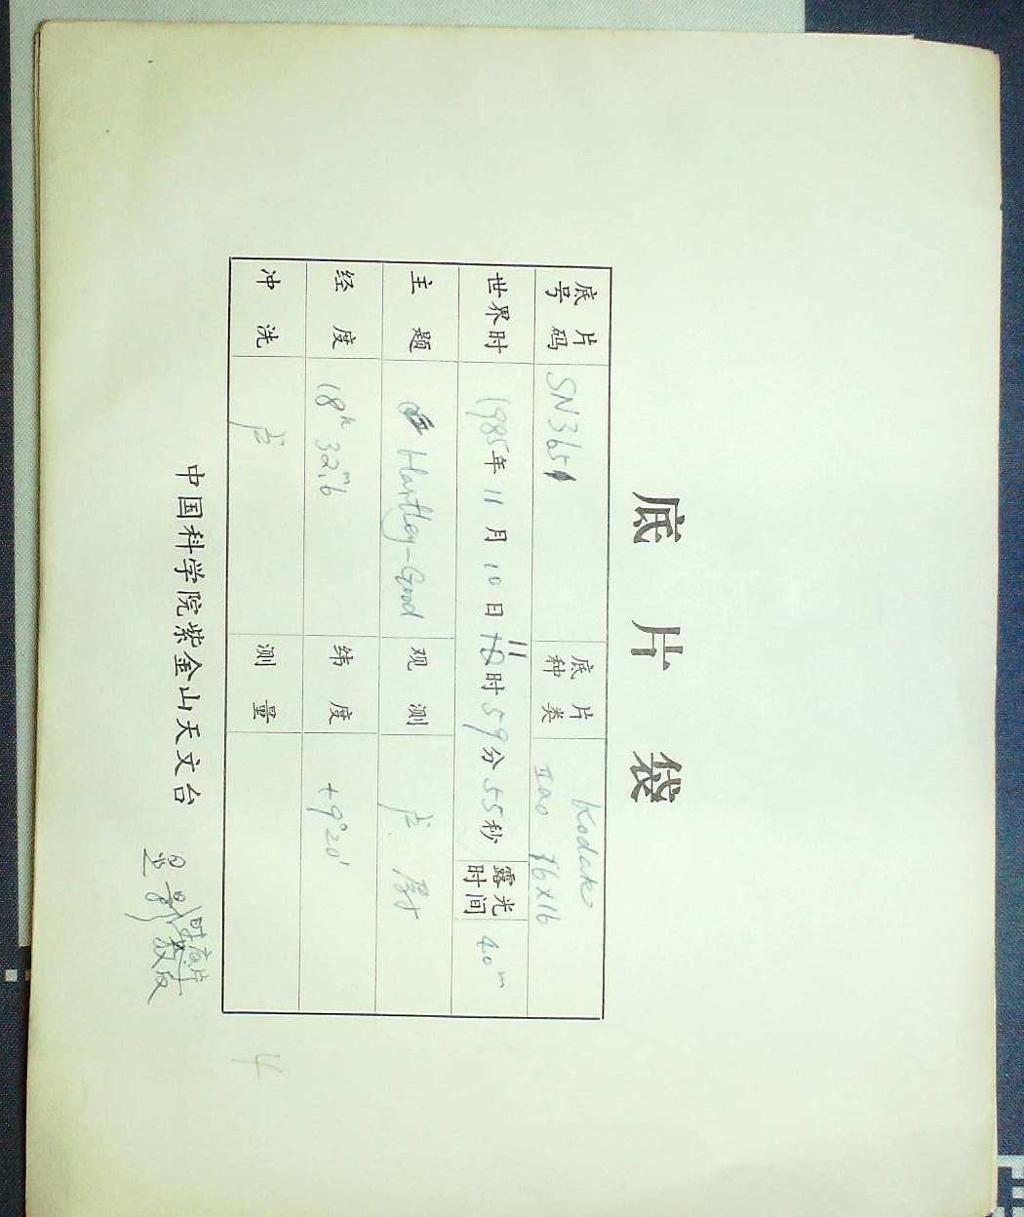 底片袋
底片号码 SN3651 底片种类 Kodak IIaO 16x16
世界时 1985年11月10日11时59分55秒 露光时间 40m
主题 Hartley-Good 观测 卢.
经度 18h32m.6 纬度 +9°20'
冲洗 卢 测量
中国科学院紫金山天文台
4